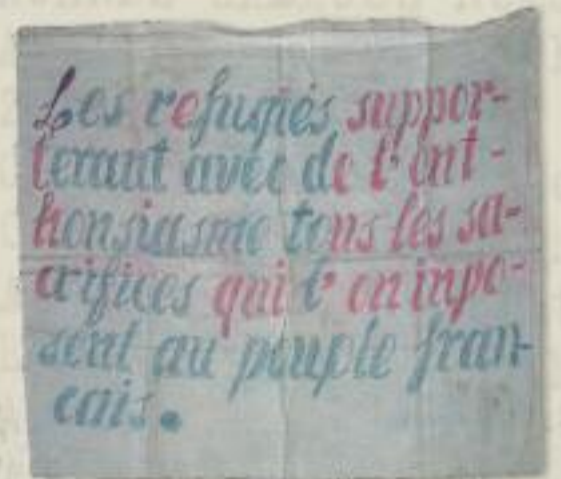 Les refugiés suppor-
terant avec de l'ent-
honsiasme tous les sa-
crifices qui l'on inpo-
sent au peuple fran-
cais.